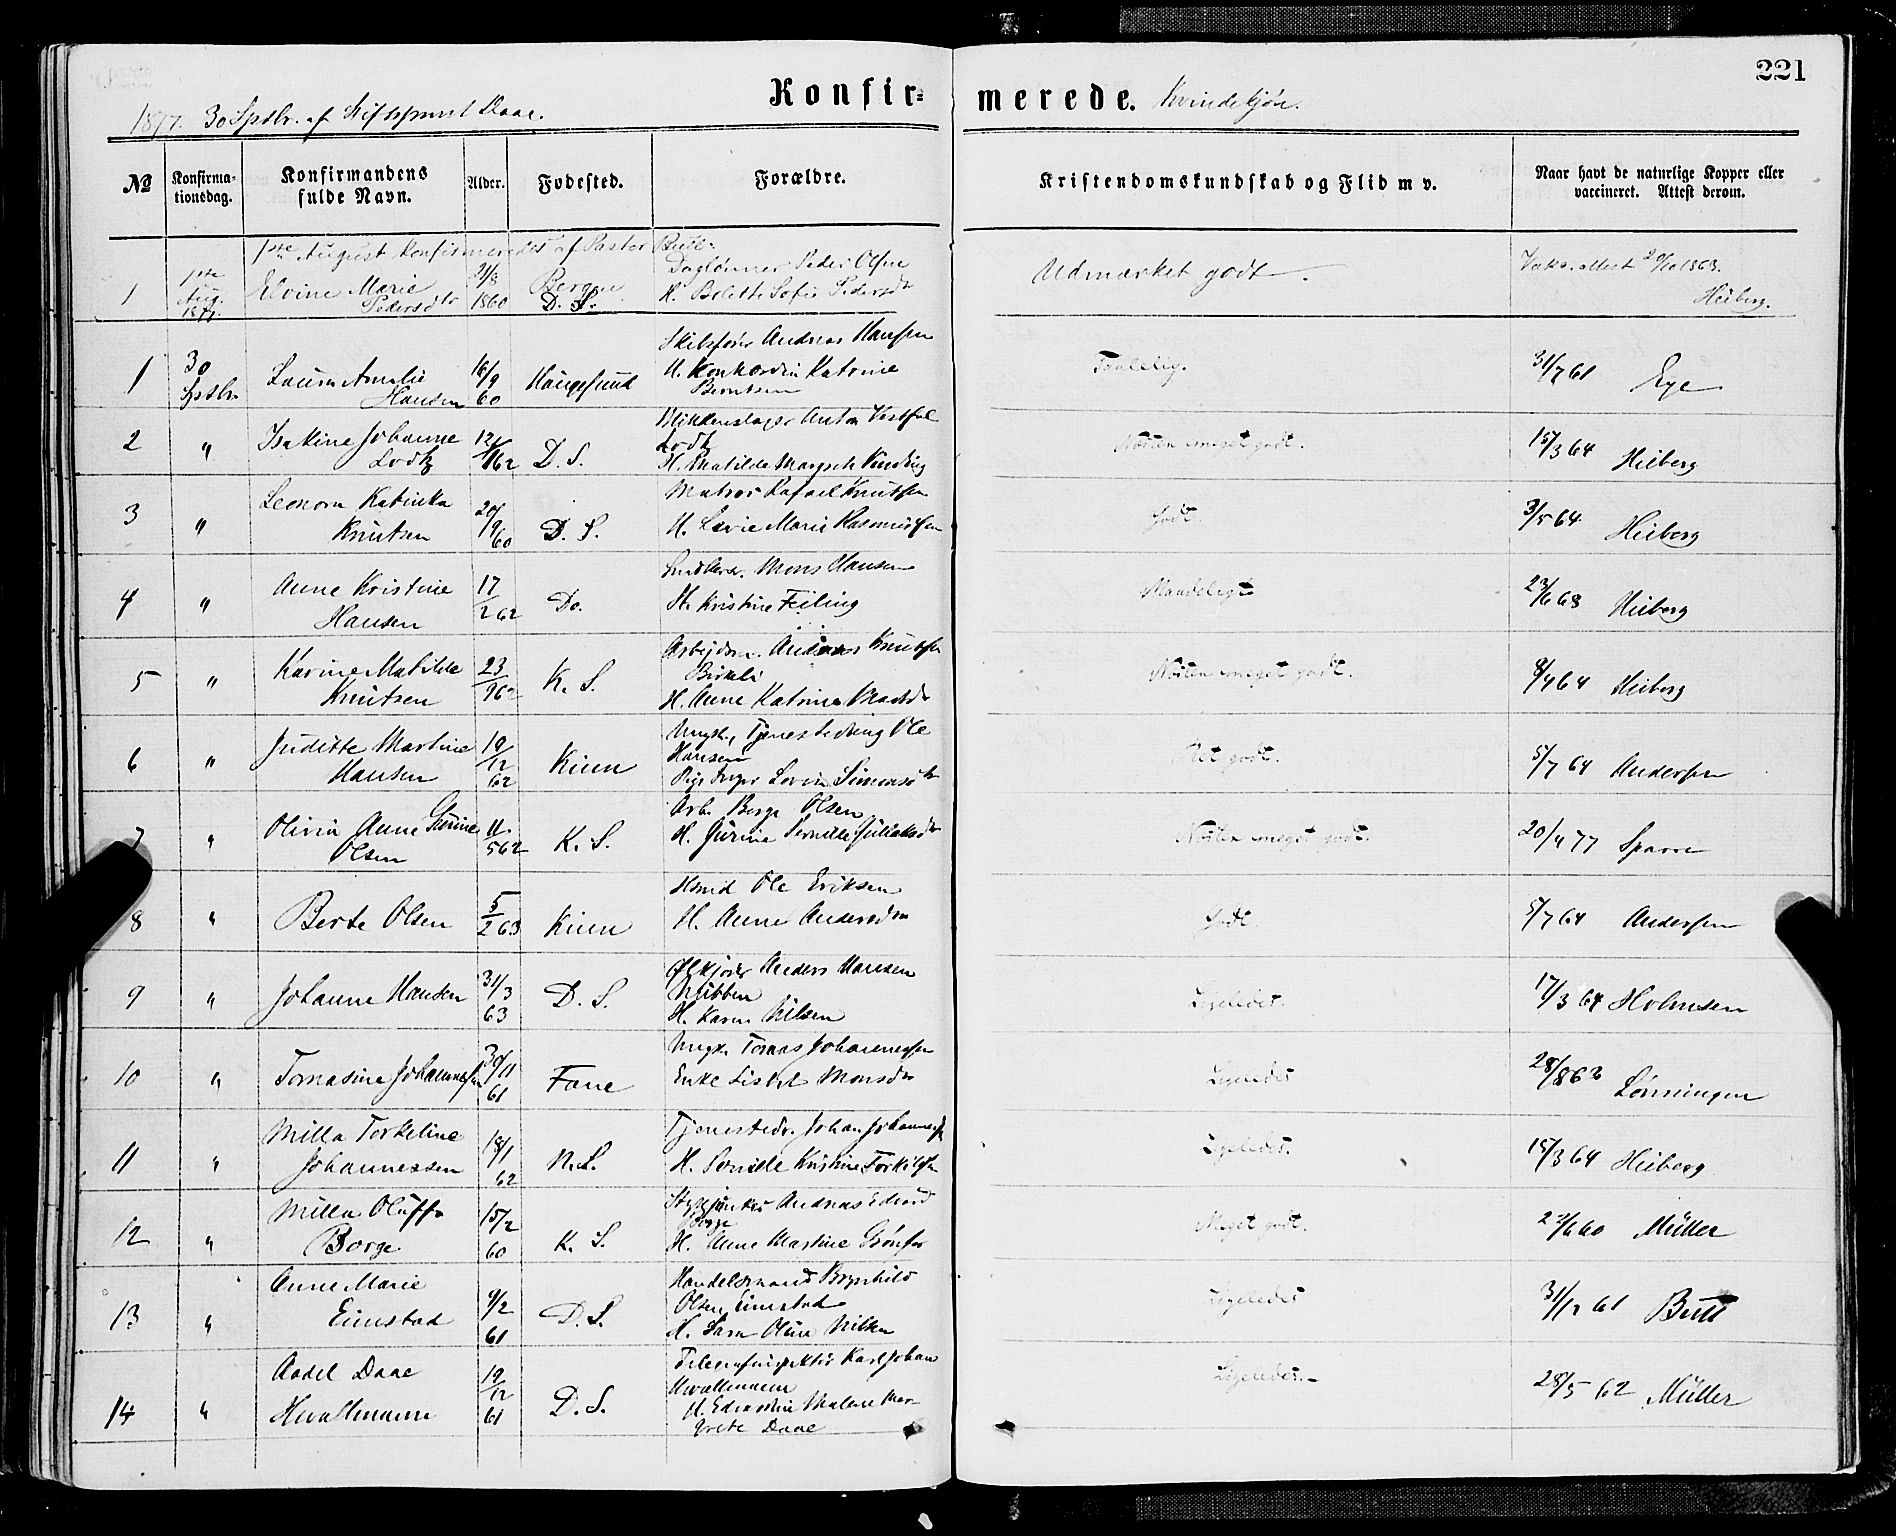 221
Konfirmerede. Kvindekjøn.
1877. 30 Sptbr. af Stiftsprovst Daae.
№ Konfirmationsdag. Konfirmandens fulde Navn. Alder. Fødested. Forældre. Kristendomskundskab og Flid m v. Naar havt de naturlige Kopper eller vaccineret. Attest derom.
1ste August konfirmeredes af Pastor
1 1ste Aug. 1877 Elvine Marie Pedersdtr 21/8 1860 Bergen D. S. Daglønner Peder Olsen H. Bolette Sofie Pedersdtr Udmærket godt. Vaks. Attest 1863. Heiberg.
1 30 Sptbr Laura Amalie Hansen 16/9 60 Haugesund Skibsfører Andreas Hansen H. Konkordia Katrine Berntsen Taalelig. 31/7 61 Eye
2 " Isakine Johanne Lodtz 12/ 62 D. S. Blikkenslager Anton Vestfal Lodtz H. Matilde Margrete Næsten meget godt. 15/3 64 Heiberg
3 " Leonora Katinka Knutsen 20/9 60 D. S. Matros Rafael Knutsen H. Marie Rasmussen Godt. 3/5 64 Heiberg
4 " Anne Kristine Hansen 17/2 62 Do. Mons Hansen H. Kristine Feiling Maadeligt 23/6 63 Heiberg
5 " Karine Matilde Knutsen 23/9 62 K. S. Arbejdsm. Knutsen H. Anne Katrine Næsten meget godt. 8/4 64 Heiberg
6 " Juditte Martine Hansen 19/12 62 Kinn Ungk., Tjenestedreng Ole Hansen Pige Inger Lovise Simonsdtr Ret godt. 5/7 64 Andersen
7 " Olivia Anne Gurine Olsen 11/5 62 K. S. Arb. Børge Olsen H. Gurine Pernille Næsten meget godt. 20/4 77 Sparre
8 " Berte Olsen 5/2 63 Kinn Smed Ole Eriksen H. Anne Andersdtr Godt. 5/7 64 Andersen
9 " Johanne Hansen 31/3 63 D. S. Ølkjører Anders Hansen Nubben H. Karen Nilsen Ligeledes. 17/3 64 Holmsen
10 " Tomasine Johannessen 30/11 61 Fane Ungk. Tomas Johannessen Enke Lisbet Monsdtr Ligeledes 28/8 63 Lønningen
11 " Milla Torkeline Johannessen 18/1 62 N. S. Tjenestedr. Johan Johannessen H. Pernille Kristine Torkilsen Ligeledes. 15/3 64 Heiberg
12 " Milla Oluffa Borge 15/2 60 K. S. Stykjunker Andreas Edvard Borge H. Anne Martine Grønfor Meget godt. 2/6 60 Müller
13 " Anne Marie Eimstad 9/2 61 D. S. Handelsmand Brynhild Olsen Eimstad H. Sara Oline Nilsen Ligeledes 31/12 61 Bull
14 " Aadel Daae Hvallmann 19/12 61 D. S. Karl Johan Hvallmann H. Edvardine Malene Margrete Daae Ligeledes. 28/5 62 Müller